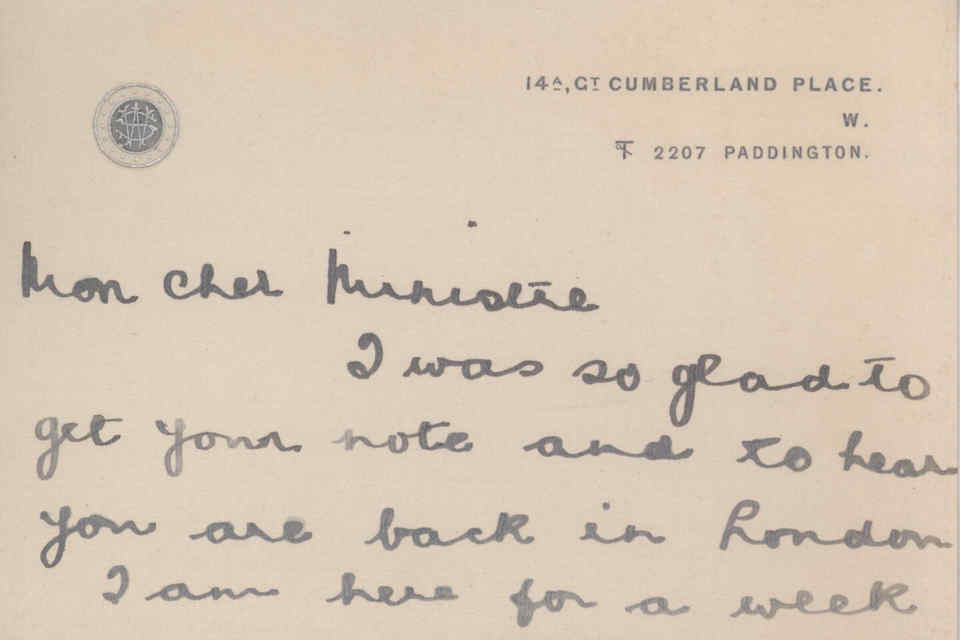 14A, GT CUMBERLAND PLACE.
W.
T 2207 PADDINGTON.
Mon cher Ministre
I was so glad to
get your note and to hear
you are back in London
I am here for a week